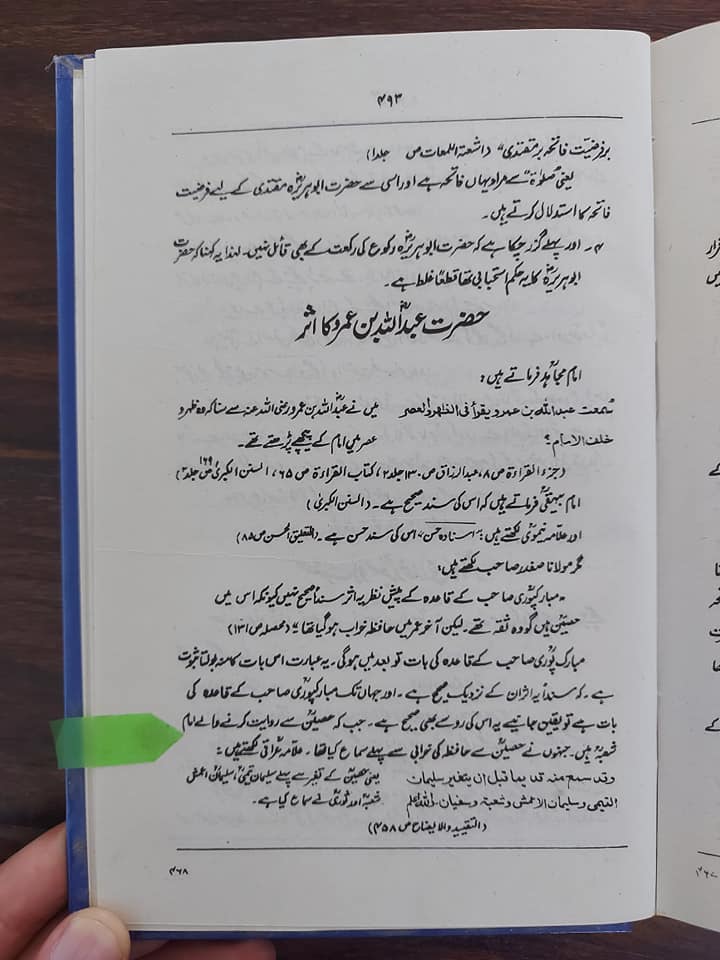 ۴۹۳
بر فرضیت فاتحہ بر مقتدی“ (اشعۃ اللمعات ص جلد۱)
یعنی ”صلوٰۃ“ سے مراد یہاں فاتحہ ہے اور اسی سے حضرت ابوہریرہؓ مقتدی کے لیے فرضیت
فاتحہ کا استدلال کرتے ہیں۔
۴۔ اور پہلے گزر چکا ہے کہ حضرت ابوہریرہؓ رکوع کی رکعت کے بھی قائل نہیں۔ لہٰذا یہ کہنا کہ حضرت
ابوہریرہؓ کا یہ حکم استحبابی تھا قطعاً غلط ہے۔
حضرت عبداللہؓ بن عمرو کا اثر
امام مجاہدؒ فرماتے ہیں:
سمعت عبداللہ بن عمرو یقرأ فی الظہر والعصر میں نے عبداللہؓ بن عمرو رضی اللہ عنہ سے سنا کہ وہ ظہر و
خلف الامام؟ عصر میں امام کے پیچھے پڑھتے تھے۔
(جزء القراءۃ ص ۸، عبدالرزاق ص ۱۳۰ جلد ۲، کتاب القراءۃ ص ۶۵، السنن الکبریٰ ص ۱۶۹ جلد ۲)
امام بیہقیؒ فرماتے ہیں کہ اس کی سند صحیح ہے۔ (السنن الکبریٰ)
اور علامہ نیمویؒ لکھتے ہیں: ”اسنادہ حسن“ اس کی سند حسن ہے۔ (التعلیق الحسن ص ۸۵)
مگر مولانا صفدر صاحب لکھتے ہیں:
”مبارکپوریؒ صاحب کے قاعدہ کے پیش نظر یہ اثر سنداً صحیح نہیں کیونکہ اس میں
حصینؒ ہیں گو وہ ثقہ تھے۔ لیکن آخر عمر میں حافظہ خراب ہو گیا تھا“ (محصلہ ص ۱۳۱)
مبارکپوریؒ صاحب کے قاعدہ کی بات تو بعد میں ہوگی۔ یہ عبارت اس بات کا منہ بولتا ثبوت
ہے۔ کہ سنداً یہ اثر ان کے نزدیک صحیح ہے۔ اور جہاں تک مبارکپوریؒ صاحب کے قاعدہ کی
بات ہے تو یقین جانیے یہ اس کی رو سے بھی صحیح ہے۔ جب کہ حصینؒ سے روایت کرنے والے امام
شعبہؒ ہیں۔ جنہوں نے حصینؒ سے حافظہ کی خرابی سے پہلے سماع کیا تھا۔ علامہ عراقیؒ لکھتے ہیں:
وقد سمع منہ قدیما قبل ان یتغیر سلیمان یعنی حصین کے تغیر سے پہلے سلیمان تیمیؒ، سلیمانؒ اعمش
التیمی وسلیمان الاعمش وشعبۃ وسفیان۔ واللہ اعلم شعبہؒ اور ثوریؒ نے سماع کیا ہے۔
(التقیید والایضاح ص ۴۵۸)
۴۶۸